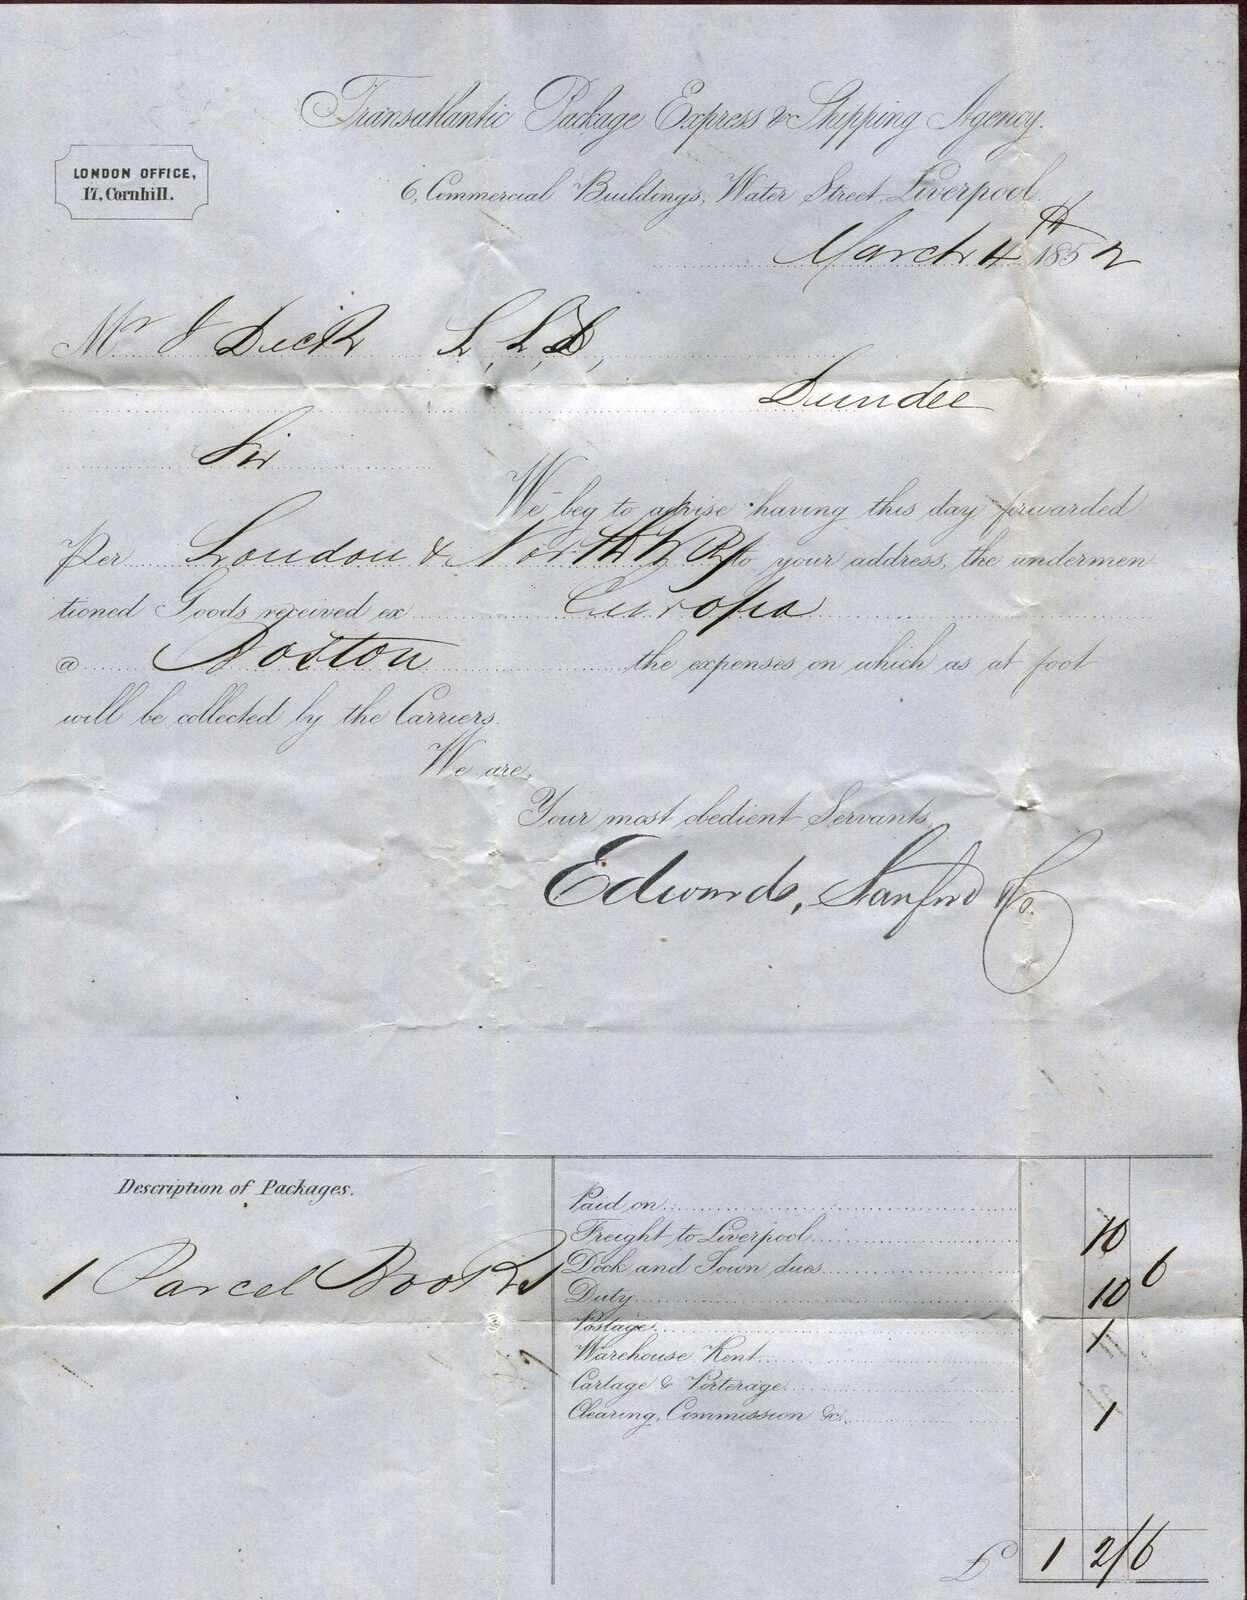 Transatlantic Package Express & Shipping Agency.
LONDON OFFICE,
17, Cornhill.
6, Commercial Buildings, Water Street, Liverpool
March 4th 1852
Mr J Dick L, L, D,
Dundee
Sir
We beg to advise having this day forwarded
Per London & North W Ry to your address, the undermen
tioned Goods received ex Europa
@ Boston the expenses on which as at foot
will be collected by the Carriers.
We are,
Your most obedient Servants,
Edwards, Sanford & Co.
Description of Packages.
1 Parcel Books
Paid on
Freight to Liverpool 10
Dock and Town dues
Duty 10 6
Postage 1
Warehouse Rent
Cartage & Porterage
Clearing, Commission &c. 1
£ 1 2/6